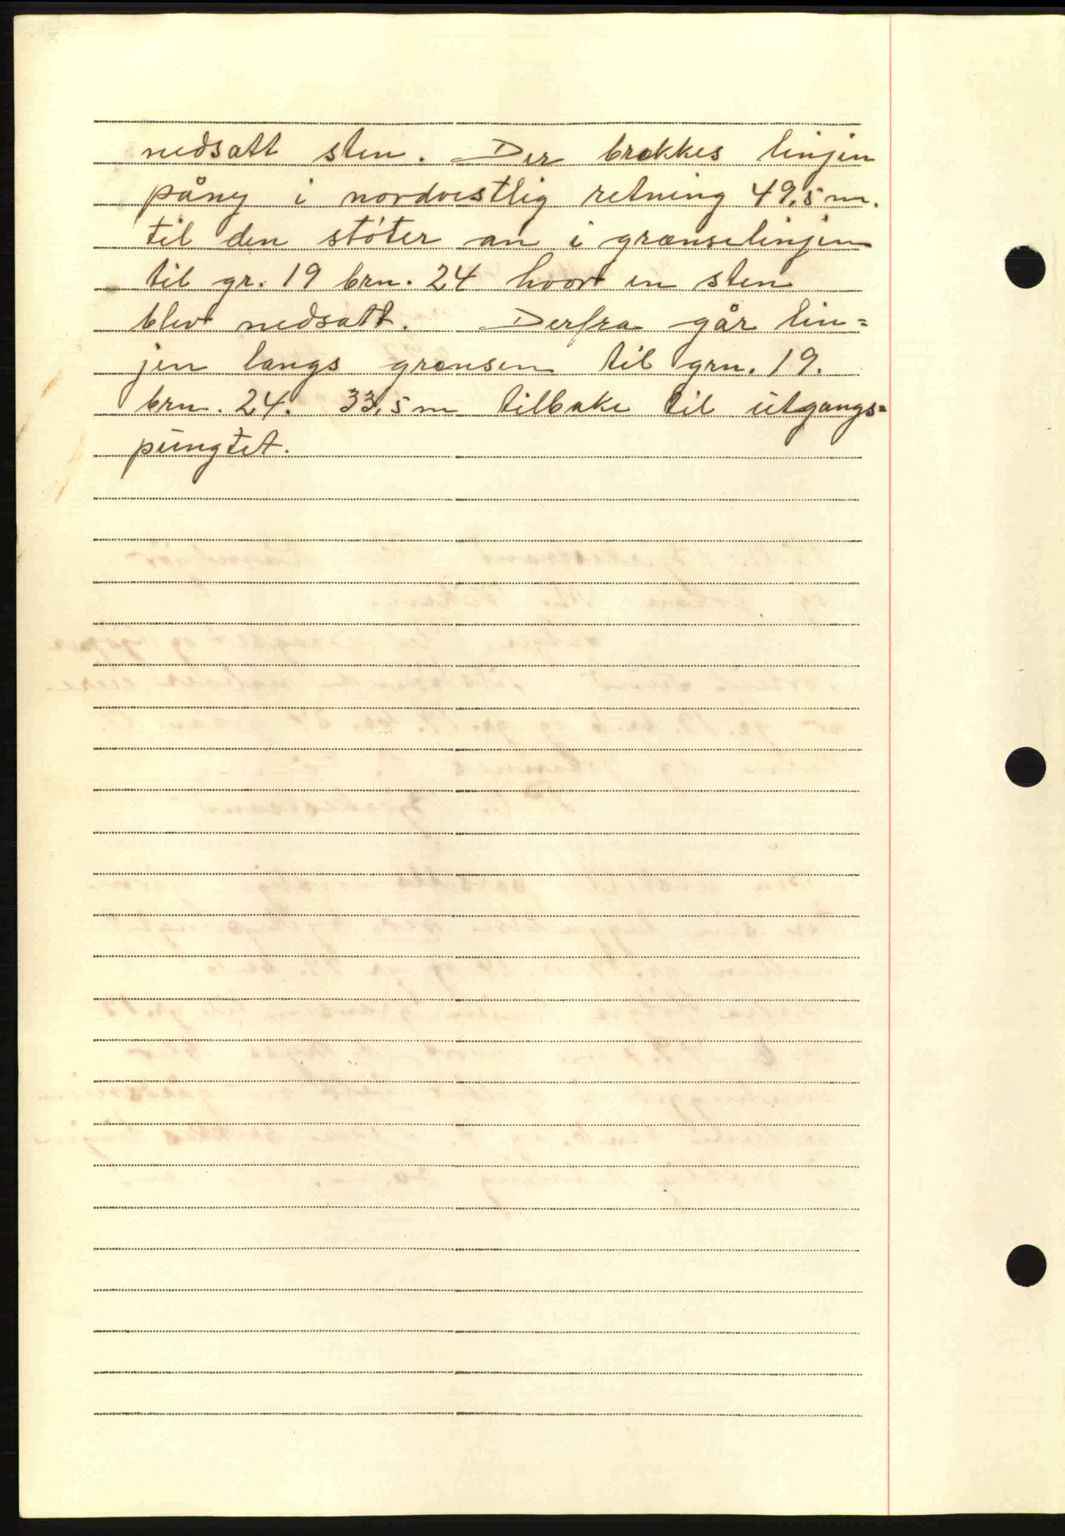 nedsatt sten. Der brekkes linjen
påny i nordvestlig retning 49,5 m.
til den støter an i grænselinjen
til gr. 19 brn. 24 hvor en sten
blev nedsatt. Derfra går lin=
jen langs grensen til grn. 19.
brn. 24. 33,5 m tilbake til utgangs=
pungtet.